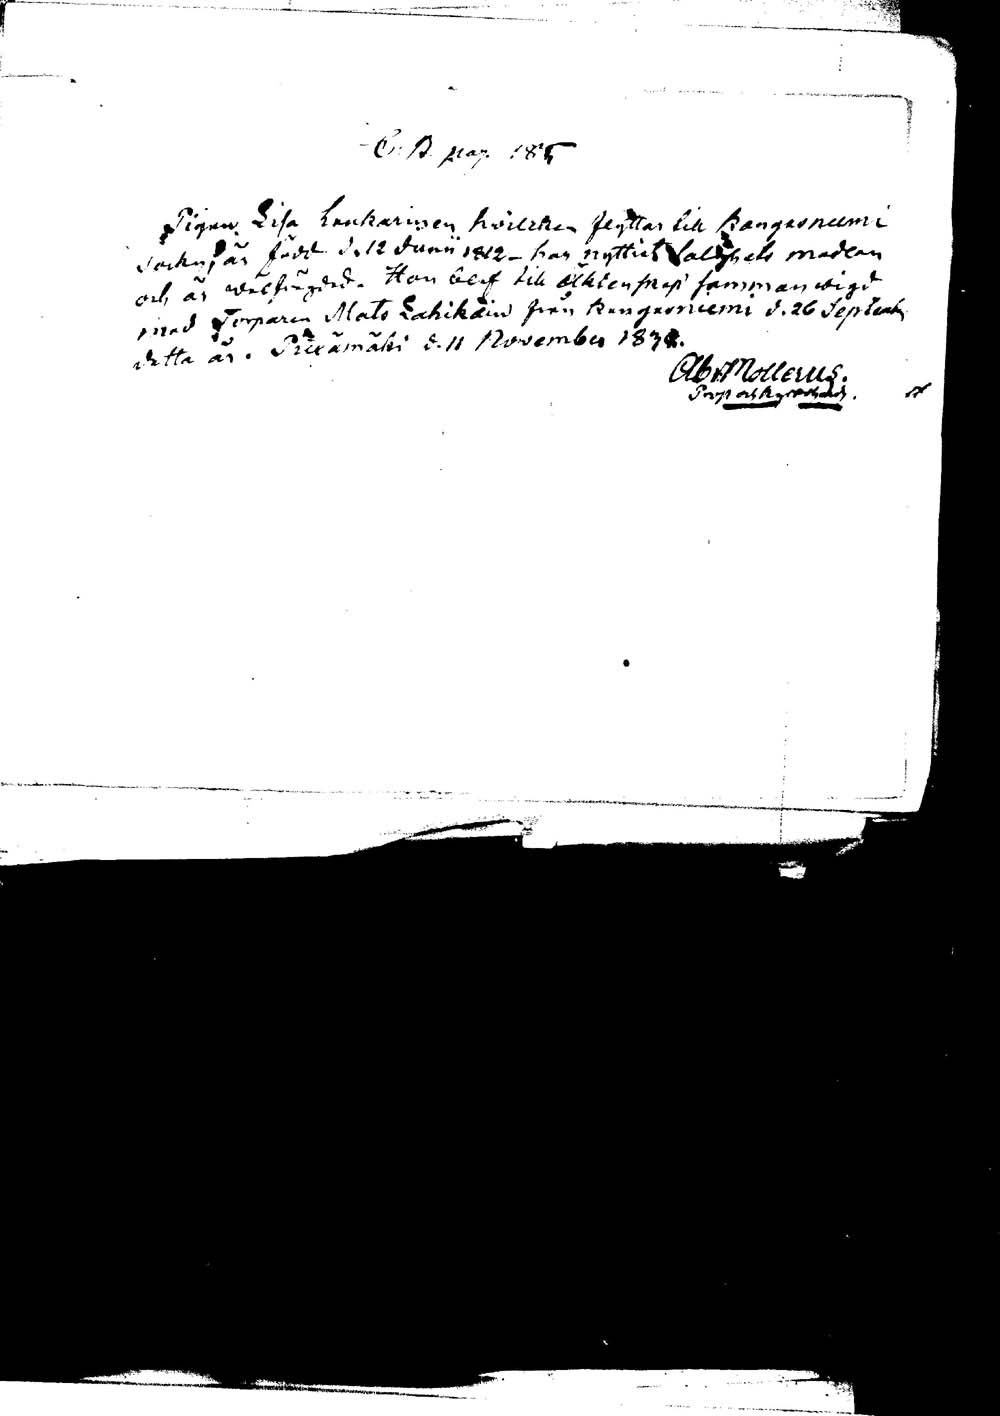 C. B. pag. 185
Pigan Lisa Laukarinen hvilcken flyttar till Kangasniemi
Sockn, är född d. 12 Junii 1812 – har nyttiat Salighets medlen
och är välfrägdad. Hon blef till äktenskap samman wigd
med Torparen Mats Lahikain från Kangasniemi d. 26 Septemb.
detta år. Piexämäki d. 11 November 1838.
Abr. Mollerus.
Prost och Kyrckoherde.